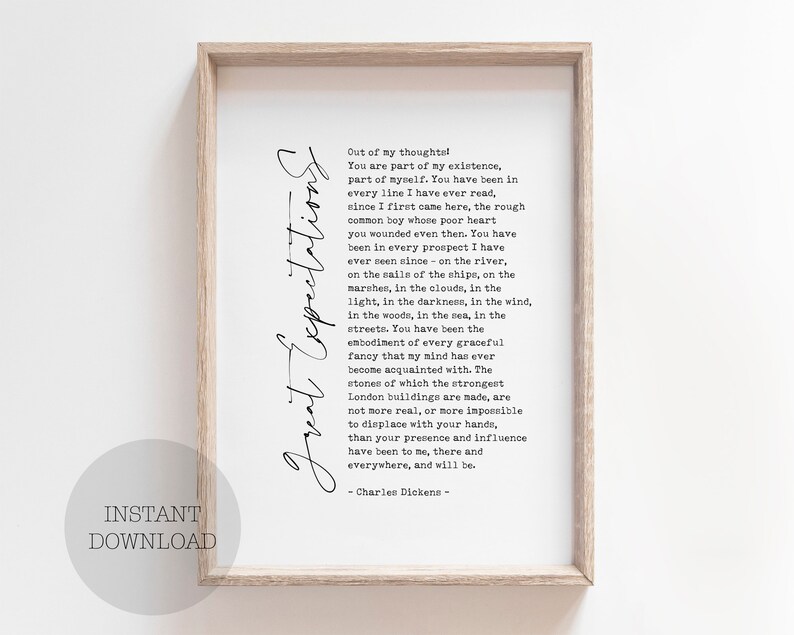 Great Expectations
Out of my thoughts!
You are part of my existence,
part of myself. You have been in
every line I have ever read,
since I first came here, the rough
common boy whose poor heart
you wounded even then. You have
been in every prospect I have
ever seen since – on the river,
on the sails of the ships, on the
marshes, in the clouds, in the
light, in the darkness, in the wind,
in the woods, in the sea, in the
streets. You have been the
embodiment of every graceful
fancy that my mind has ever
become acquainted with. The
stones of which the strongest
London buildings are made, are
not more real, or more impossible
to displace with your hands,
than your presence and influence
have been to me, there and
everywhere, and will be.
– Charles Dickens –
INSTANT
DOWNLOAD